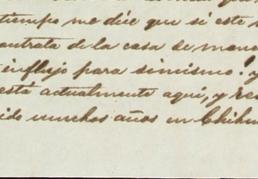 tiempo me dice que si este
contrata de la casa de mone
influjo para simismo. y
está actualmente aquí, y re
ido muchos años en Chihu